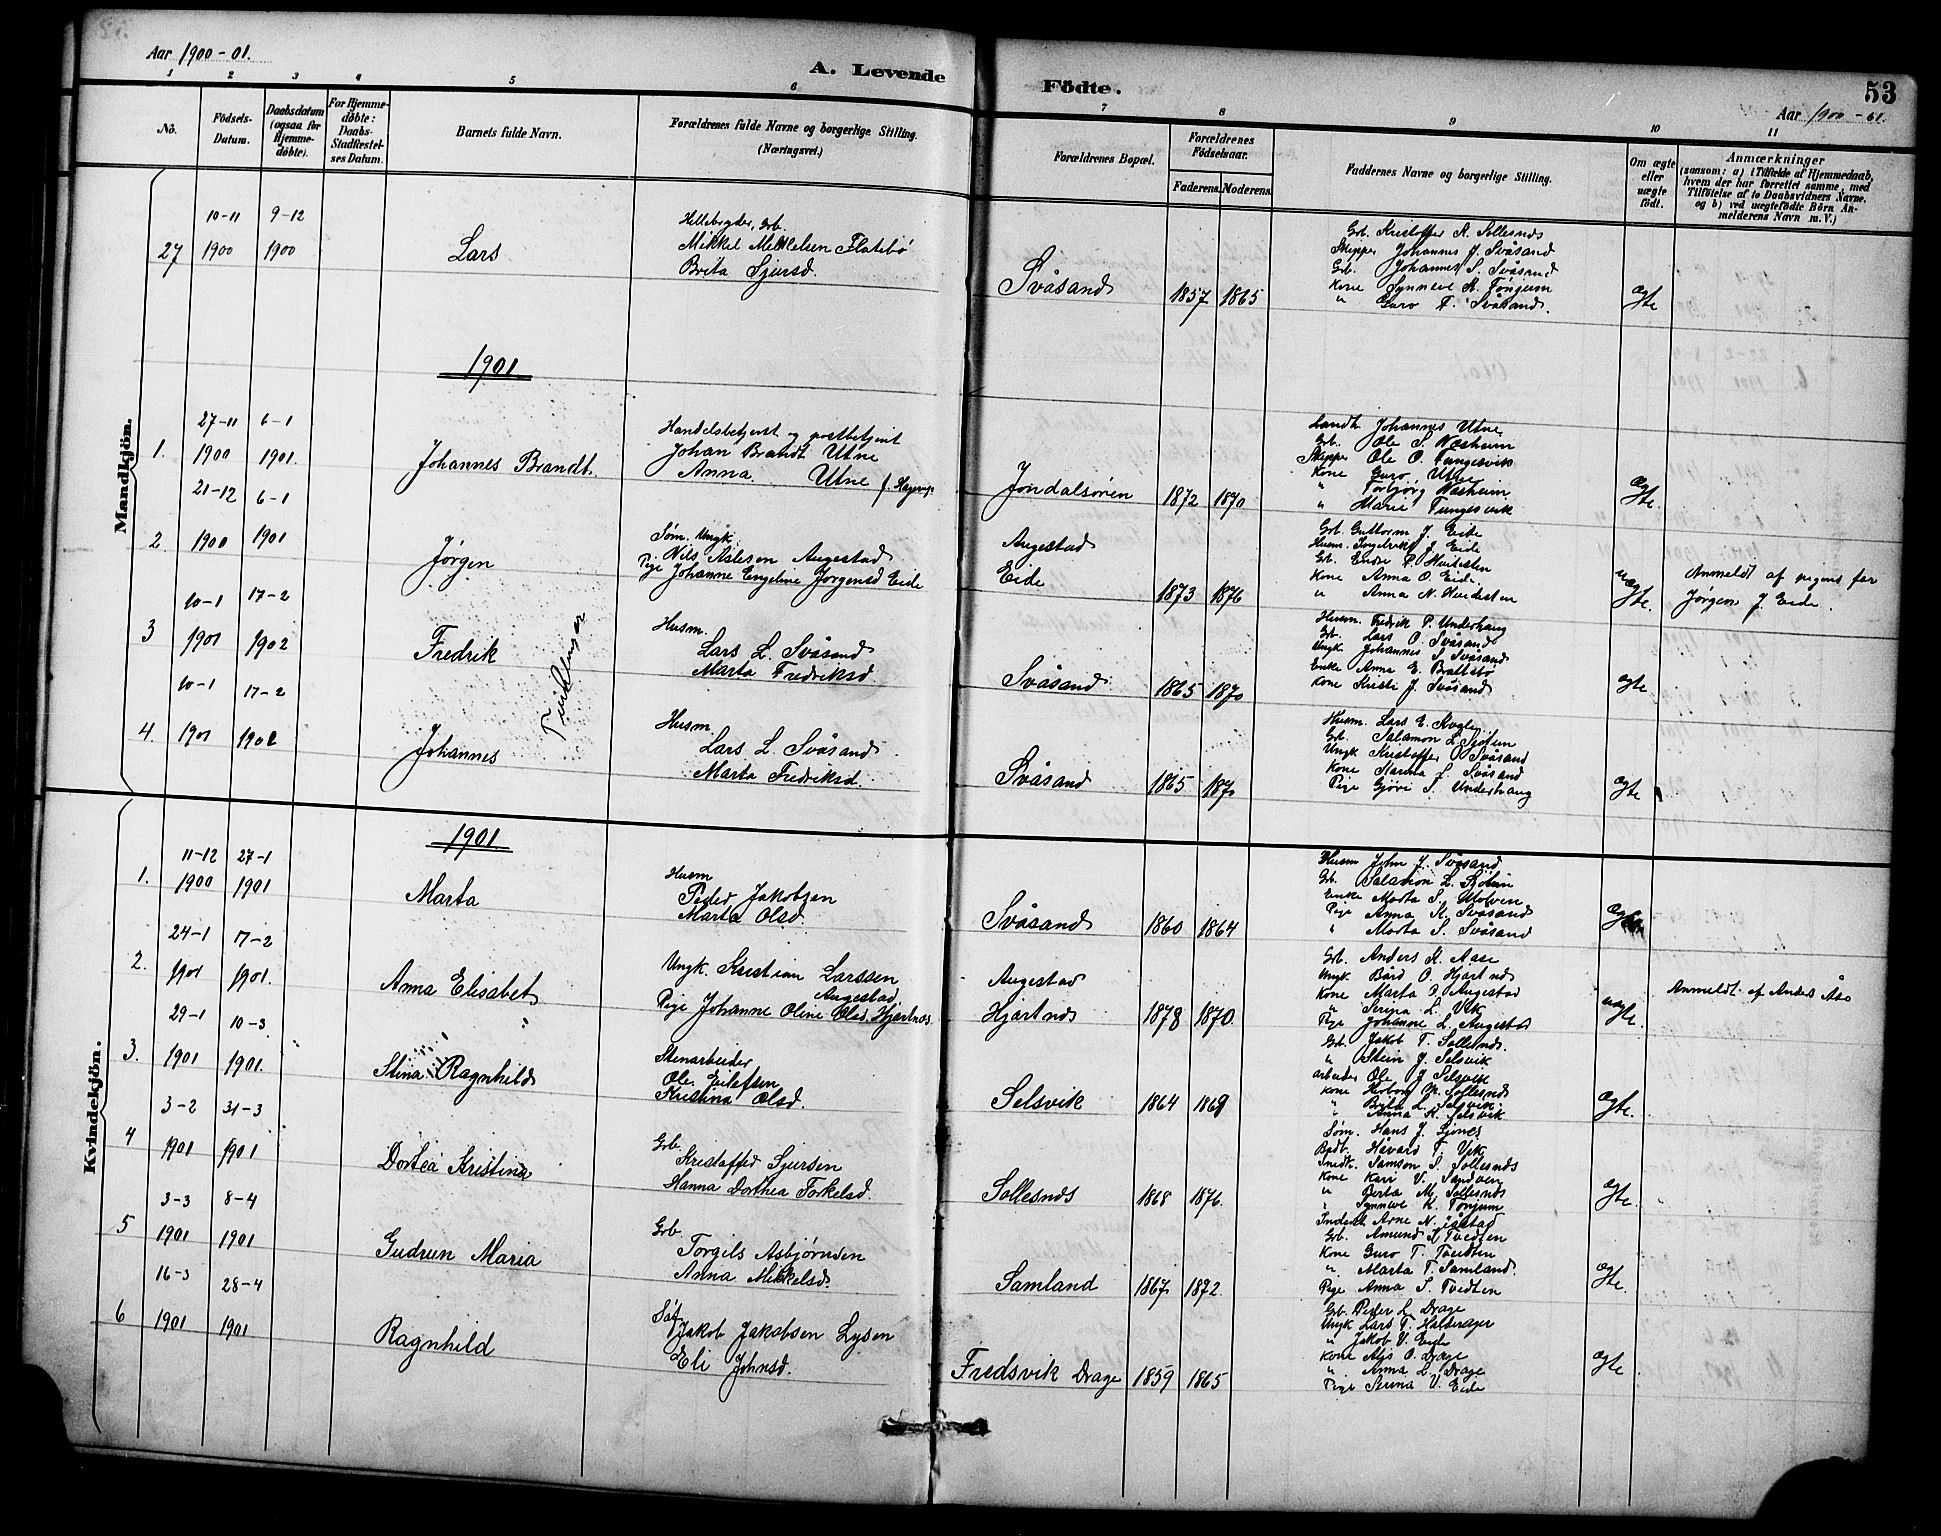 Aar 1900-01.
A. Levende
Fødte.
53
Aar 1900-01.
1 2 3 4 5 6 7 8 9 10 11
No.
Fødsels-Datum.
Daabsdatum (ogsaa for Hjemme-døbte).
For Hjemme-døbte: Daabs-Stadfestel-ses Datum.
Barnets fulde Navn.
Forældrenes fulde Navne og borgerlige Stilling.
(Næringsvei.)
Forældrenes Bopæl.
Forældrenes Fødselsaar.
Faderens. Moderens.
Faddernes Navne og borgerlige Stilling.
Om ægte eller uægte født.
Anmærkninger
(saasom: a) i Tilfælde af Hjemmedaab,
hvem der har forrettet samme, med
Tilføielse af to Daabsvidners Navne,
og b) ved uægtefødte Børn An-
melderens Navn m. V.)
Mandkjøn.
27
10-11 1900
9-12 1900
Lars
Grb.
Mikkel Mikkelsen Flatebø
Brita Sjursd.
Svåsand
1857 1865
Grb. Kristoffer Sollesnes
Skipper Johannes J. Svåsand
Grb. Johannes S. Svåsand
Kone Synneve K. Tonjum
" Guro T. Svåsand.
Ægte
1901
1.
27-11 1900
6-1 1901.
Johannes Brandt.
Handelsbetjent og postbetjent
Johan Brandt Utne
Anna Utne f.
Jondalsøren
1872 1870
Landh. Johannes Utne
Grb. Ole S. Næsheim
Skipper Ole O. Tungesvik
Kone Guro Utne
" Torbjørg Næsheim
" Marie Tungesvik
Ægte.
2.
21-12 1900
6-1 1901
Jørgen
Søm. Ungk.
Nils Aslesen Augestad
Pige Johanne Engeline Jørgensd Eide
Augestad
Eide
1873 1876
Grb. Guttorm J. Eide
Husm. Ingebrikt J. Eide
Gb. Endre P. Hvidesten
Kone Anna O. Eide.
" Anna N. Hvidesten
uægte.
Anmeldt af pigens far
Jørgen J. Eide.
3
10-1 1901
17-2 1902
Fredrik
Tvillinger
Husm.
Lars L. Svåsand
Marta Fredriksd
Svåsand
1865 1870
Husm. Fredrik P. Underhaug
Gb. Lars O. Svåsand
Ungk Johannes S. Svåsand
Enke Anna E. Brattebø
Kone Kristi J. Svåsand
Ægte
4.
10-1 1901
17-2 1902
Johannes
Husm
Lars L. Svåsand
Marta Fredriksd.
Svåsand
1865 1870
Husm. Lars E.
Gb. Salamon L. Sjøtun
Ungk Kristoffer O. Svåsand
Kone Marina L. Svåsand
Pige Gjøri S. Underhaug
Ægte
Kvindekjøn.
1901
1.
11-12 1900
27-1 1901
Marta
Husm
Peder Jakobsen
Marta Olsd.
Svåsand
1860 1864
Husm John J. Svåsand
Gb. Salamon L. Sjøtun
Enke Marta S.
Pige Anna K. Svåsand
" Marta S. Svåsand
Ægte
2.
24-1 1901
17-2 1901.
Anna Elisabet
Ungk. Kristian Larssen
Augestad
Pige Johanne Oline Olsd. Hjartnes
Augestad
Hjartnes
1878 1870.
Gb. Anders K. Aase
Ungk Bård O. Hjartnes
Kone Marta P. Augestad
" Serina L. Vik
Pige Johanne L. Augestad
uægte.
Anmeldt af Anders Åse
3.
29-1 1901
10-3 1901.
Stina Ragnhild
Stenarbeider
Ole Eilefsen
Kristina Olsd.
Selsvik
1864 1869
Gb. Jakob T. Sollesnes.
" Stein J. Selsvik
arbeider Ole J Selsvik
Kone Herborg M. Sollesnes
" Brita L. Selsvik
" Anna K. Selsvik
Ægte.
4
3-2 1901
31-3 1901
Dortea Kristina
Gb.
Kristoffer Sjursen
Hanna Dorthea Torkelsd.
Sollesnes
1868 1876.
Søm. Hans J.
Håvard T. Vik
Samson S. Sollesnes
Kone Kari V. Sandven
" Berta M. Sollesnes
" Synneve K. Tonjum
Ægte.
5
3-3 1901
8-4 1901
Gudrun Maria
Grb
Torgils Asbjørnsen
Anna Mikkelsd.
Samland
1867 1872.
Inderst Arne N.
Gb. Amund T. Tvedten
Kone Guro T. Tvedten
" Marta T. Samland.
Pige Anna S. Tvedten
Ægte.
6
16-3 1901
28-4 1901
Ragnhild
Jakob Jakobsen Lysen
Eli Johnsd.
Fredsvik Drage
1859 1865
Gb. Peder L. Drage
Ungk Lars T.
" Jakob V. Eide
Kone Alis O. Drage
" Anna L. Drage
Pige Serina V. Eide
Ægte.